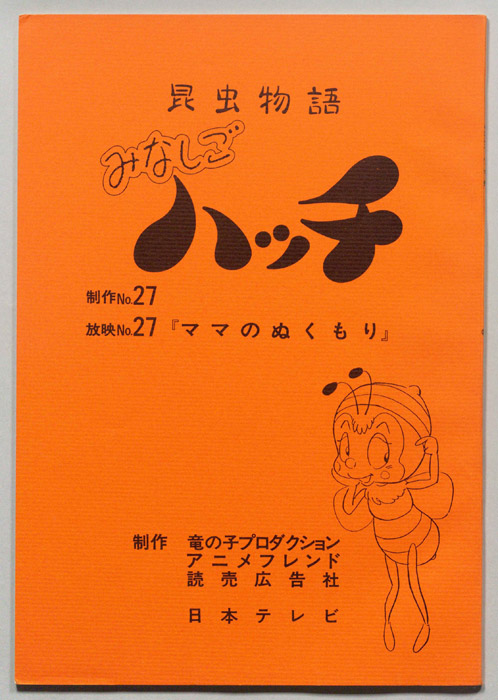 昆虫物語
みなしご
ハッチ
制作No.27
放映No.27『ママのぬくもり』
制作 竜の子プロダクション
アニメフレンド
読売広告社
日本テレビ